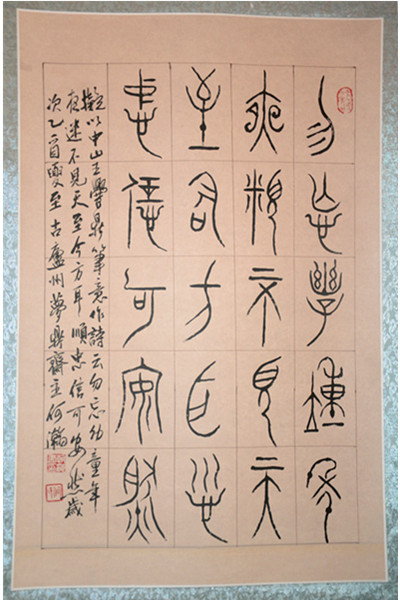 勿忘幼童年
夜迷不見天
至今方耳順
忠信可安然
擬以中山王譽鼎筆意作詩云勿忘幼童年
夜迷不見天至今方耳順忠信可安然歲
次乙酉夏至古廬州夢鼎齋主何瀚